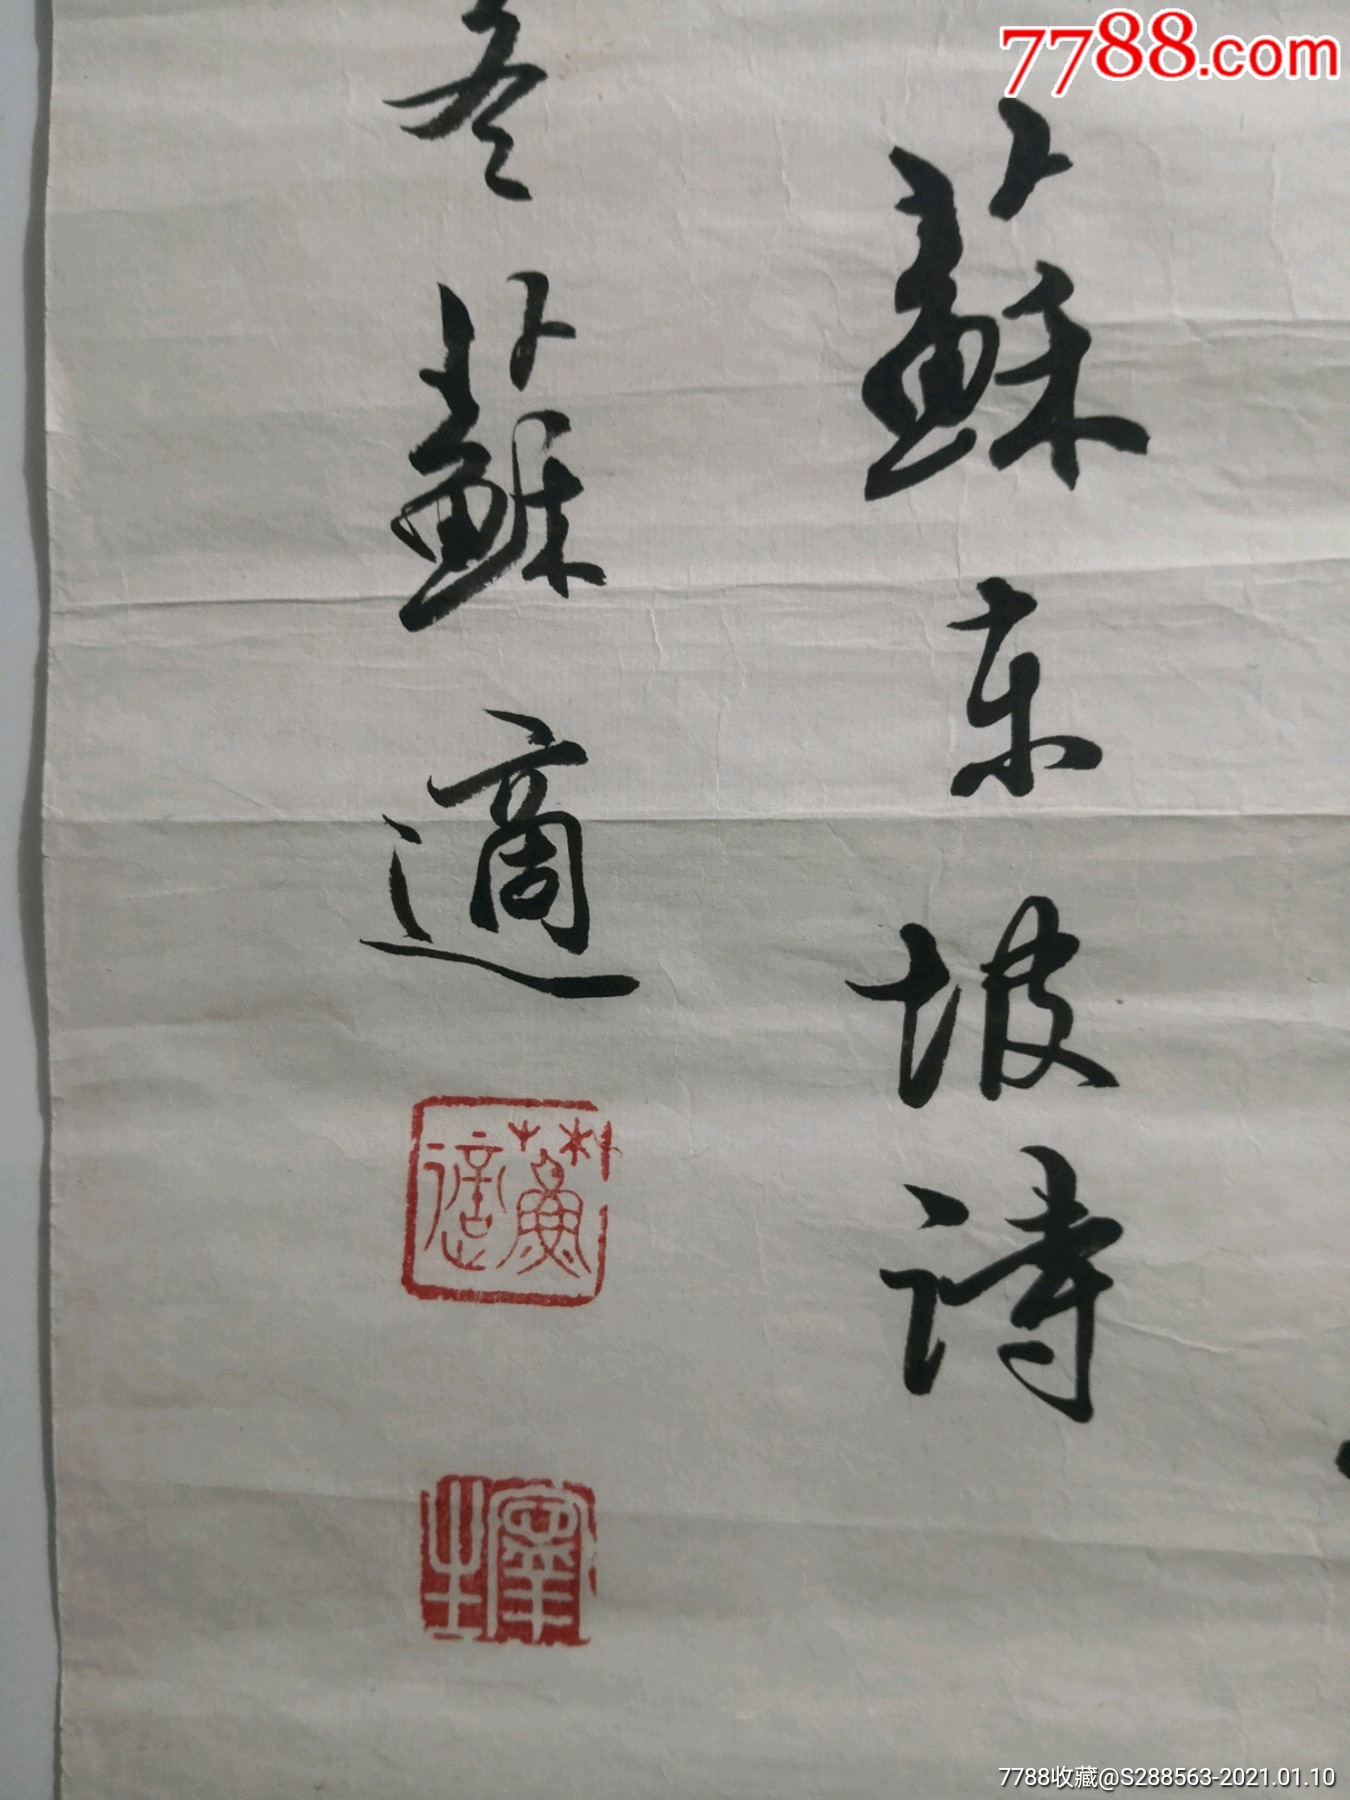 7788.com
蘇东坡诗
冬蘇適
蘇適
7788收藏@S288563-2021.01.10